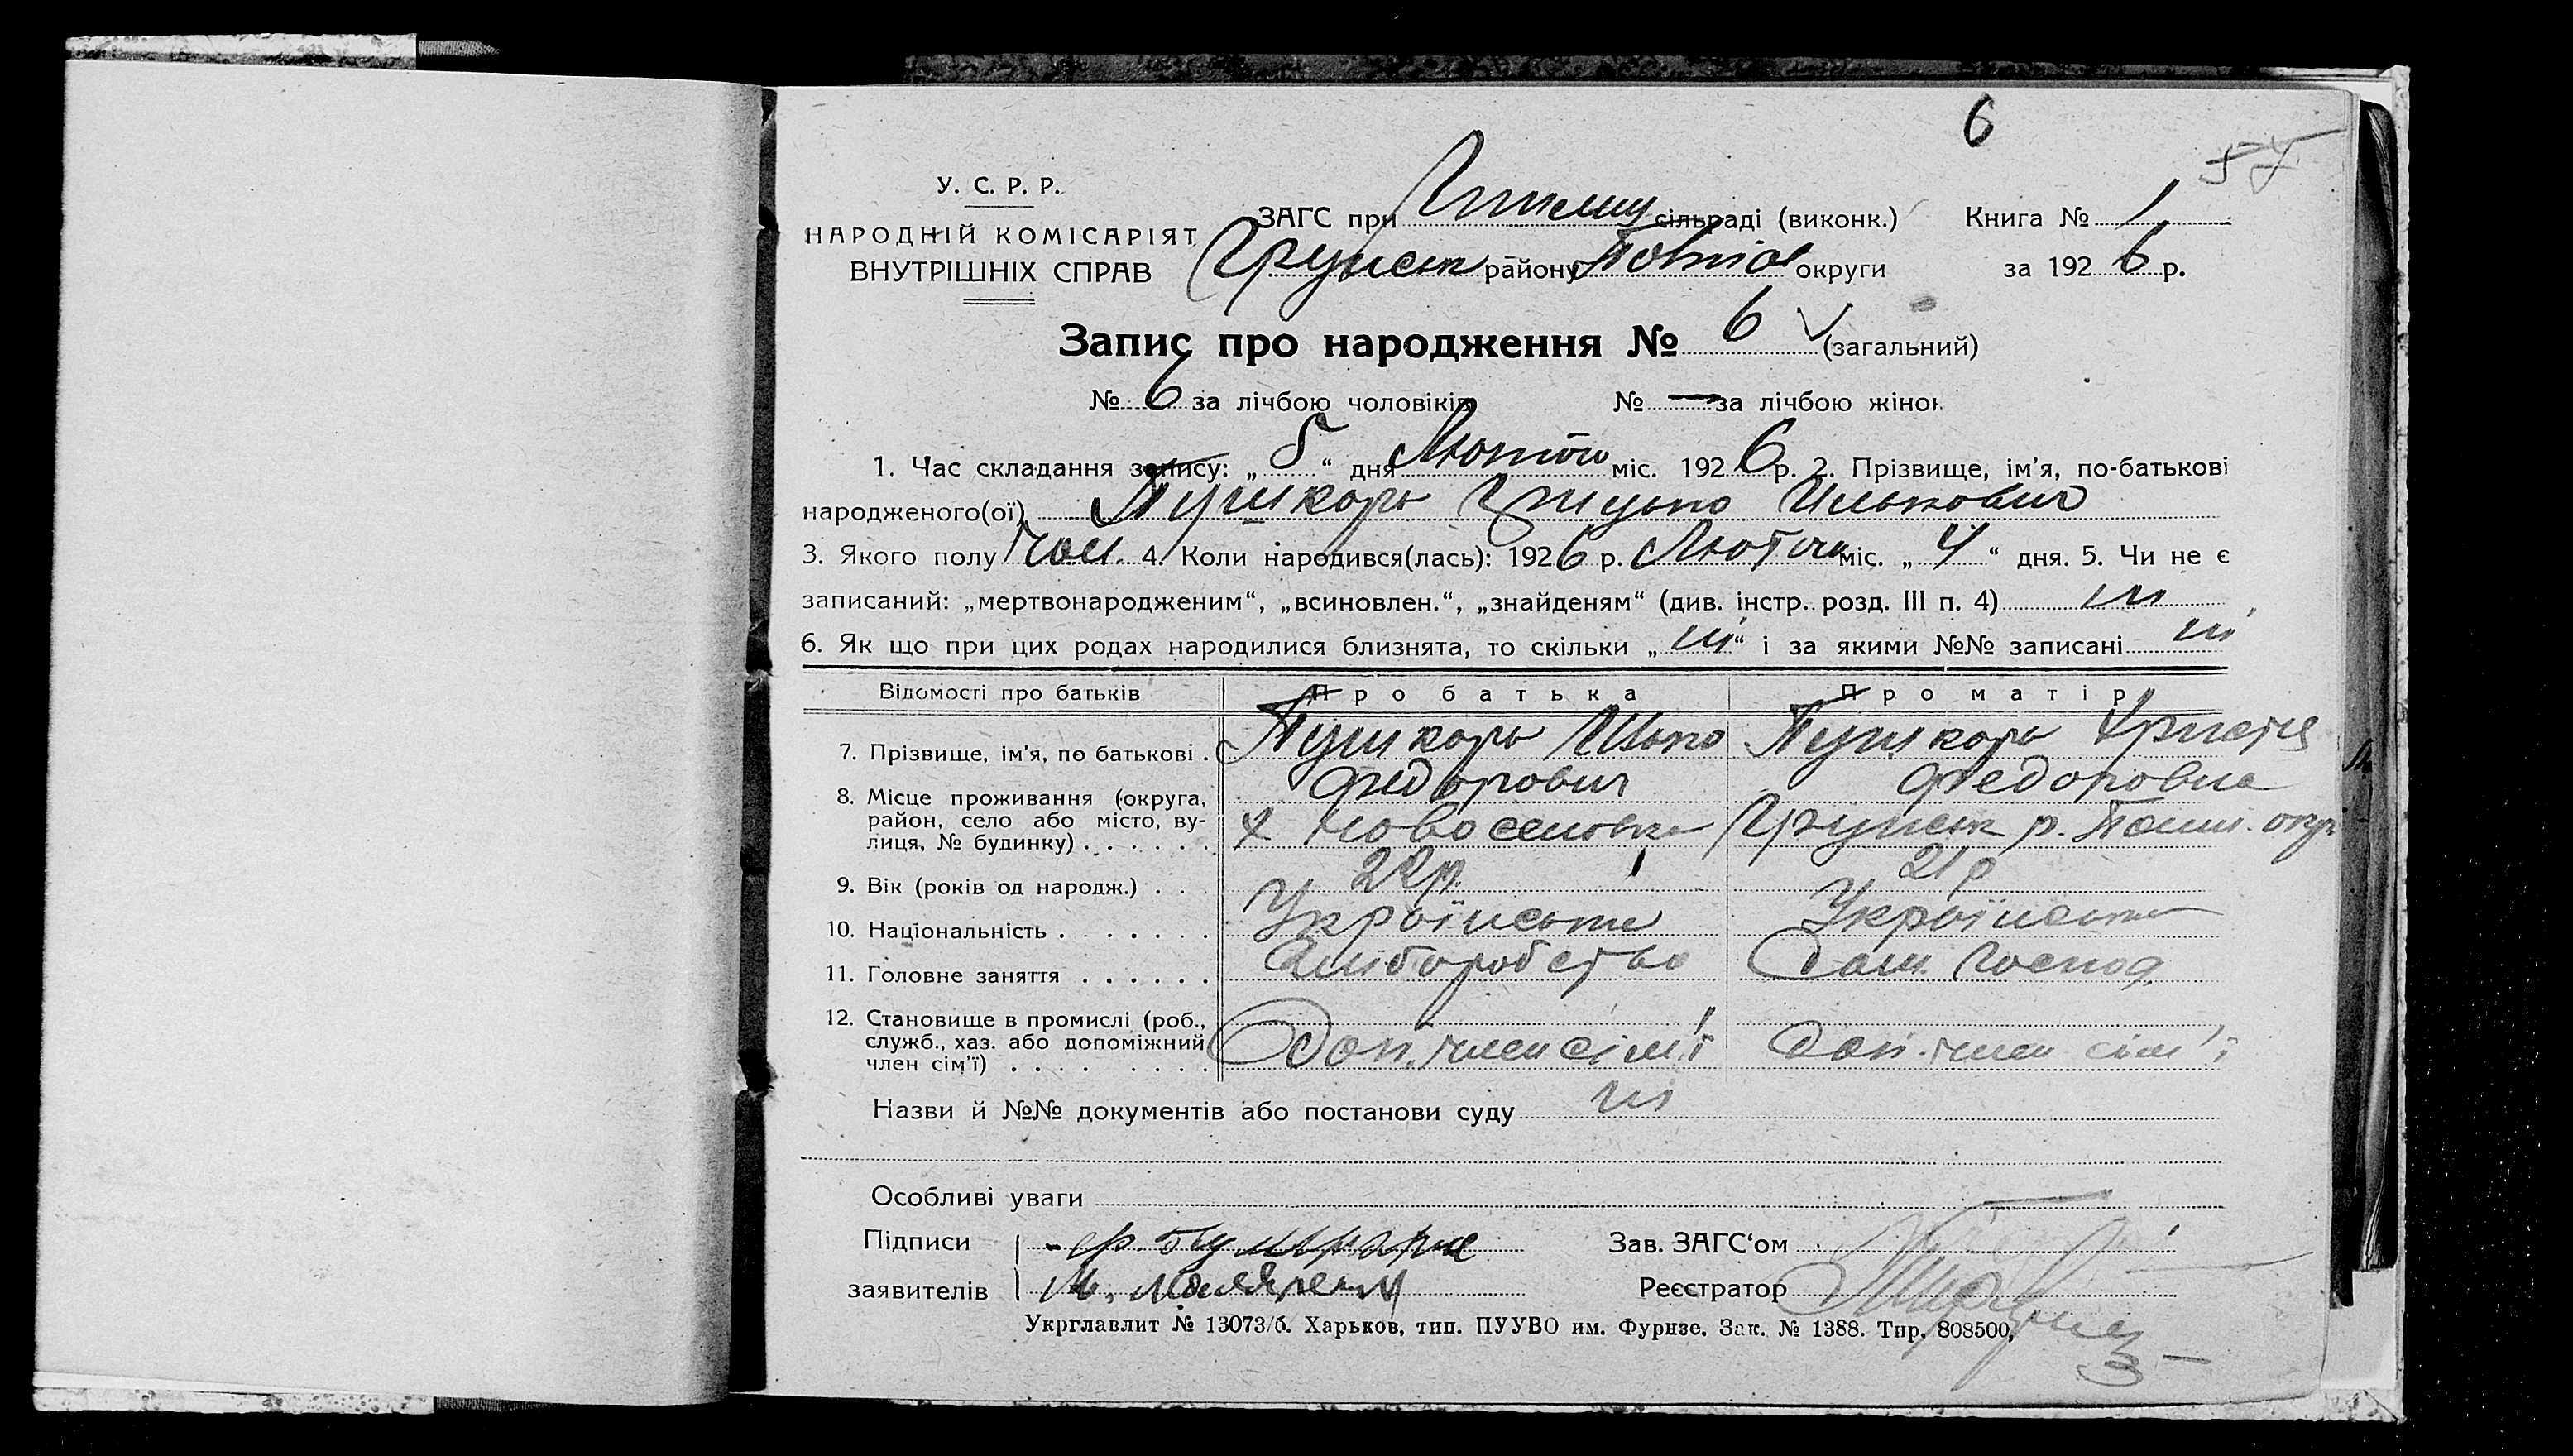 6
57
У. С. Р. Р.
НАРОДНІЙ КОМІСАРІЯТ
ВНУТРІШНІХ СПРАВ
ЗАГС при сільраді (виконк.) Книга № 1
Грунськ району Полтав округи за 192 6 р.
Запис про народження № 6 (загальний)
№ 6 за лічбою чоловіків № — за лічбою жінок
1. Час складання запису: „ 5 “ дня Лютого міс. 192 6 р. 2. Прізвище, ім’я, по-батькові
народженого(ої) Пушкарь Грицько Илькович
3. Якого полу чол. 4. Коли народився(лась): 192 6 р. Лютого міс. „ 4 “ дня. 5. Чи не є
записаний: „мертвонародженим“, „всиновлен.“, „знайденям“ (див. інстр. розд. III п. 4) ні
6. Як що при цих родах народилися близнята, то скільки „ ні “ і за якими №№ записані ні
Відомості про батьків Про батька Про матір
7. Прізвище, ім’я, по батькові . Пушкарь Илько Федорович Пушкарь Христя Федоровна
8. Місце проживання (округа,
район, село або місто, ву-
лиця, № будинку) . . . . . . х Новоселовка Грунськ р. Полт. окр
9. Вік (років од народж.) . . . 22 р. 21 р
10. Національність . . . . . . . Українська Українська
11. Головне заняття . . . . . . Хліборобство Дом. господ.
12. Становище в промислі (роб.,
служб., хаз. або допоміжний
член сім’ї) . . . . . . . . Доп. член сім'ї Доп. член сім'ї
Назви й №№ документів або постанови суду ні
Особливі уваги —
Підписи Зав. ЗАГС‘ом
заявителів М. Реєстратор
Укрглавлит № 13073/б. Харьков, тип. ПУУВО им. Фурнзе. Зак. № 1388. Тир. 808500,